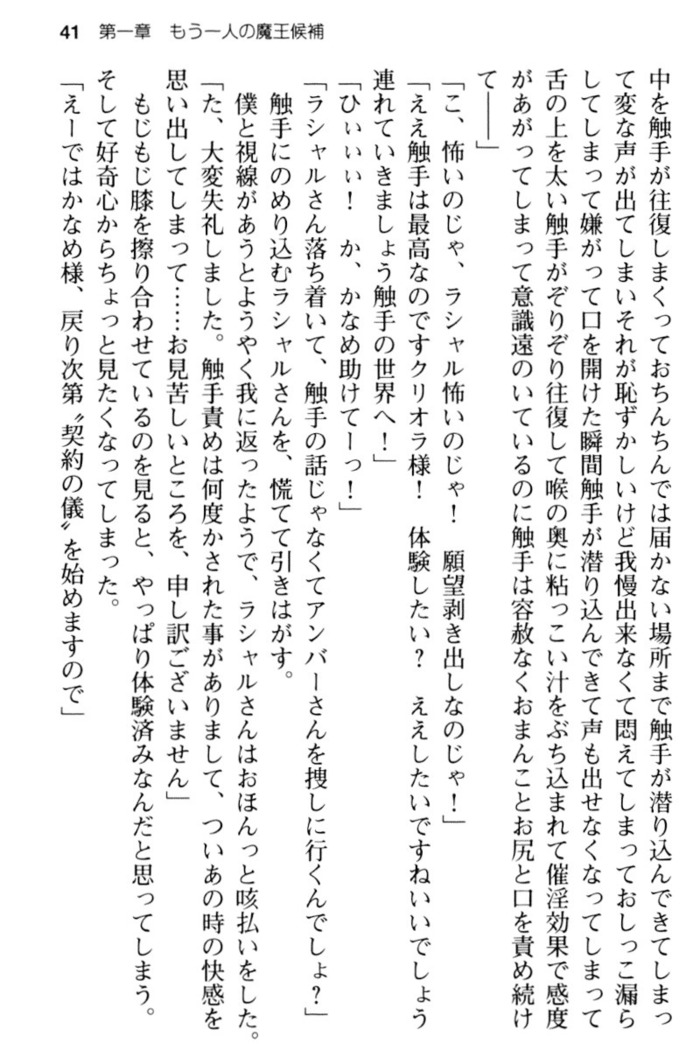 41 第一章 もう一人の魔王候補
中を触手が往復しまくっておちんちんでは届かない場所まで触手が潜り込んできてしまっ
て変な声が出てしまいそれが恥ずかしいけど我慢出来なくて悶えてしまっておしっこ漏ら
してしまって嫌がって口を開けた瞬間触手が潜り込んできて声も出せなくなってしまって
舌の上を太い触手がぞりぞり往復して喉の奥に粘っこい汁をぶち込まれて催淫効果で感度
があがってしまって意識遠のいているのに触手は容赦なくおまんことお尻と口を責め続け
て――」
「こ、怖いのじゃ、ラシャル怖いのじゃ！ 願望剥き出しなのじゃ！」
「ええ触手は最高なのですクリオラ様！ 体験したい？ ええしたいですねいいでしょう
連れていきましょう触手の世界へ！」
「ひぃぃぃ！ か、かなめ助けてーっ！」
「ラシャルさん落ち着いて、触手の話じゃなくてアンバーさんを捜しに行くんでしょ？」
触手にのめり込むラシャルさんを、慌てて引きはがす。
僕と視線があうとようやく我に返ったようで、ラシャルさんはおほんっと咳払いをした。
「た、大変失礼しました。触手責めは何度かされた事がありまして、ついあの時の快感を
思い出してしまって……お見苦しいところを、申し訳ございません」
もじもじ膝を擦り合わせているのを見ると、やっぱり体験済みなんだと思ってしまう。
そして好奇心からちょっと見たくなってしまった。
「えーではかなめ様、戻り次第〝契約の儀〟を始めますので」